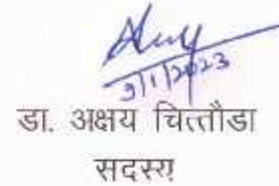 9/1/2023
डा. अक्षय चित्तौडा
सदस्य